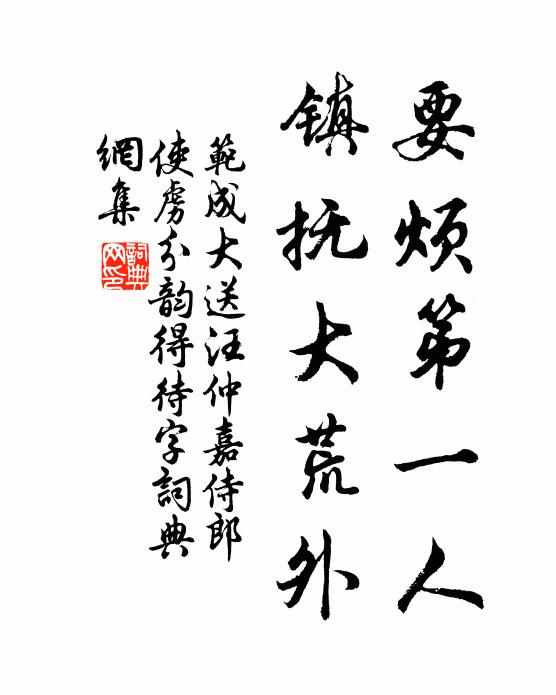 要烦第一人
镇抚大荒外
範成大送汪仲嘉侍郎
使虏分韵得待字詞典
網集
詞典網印